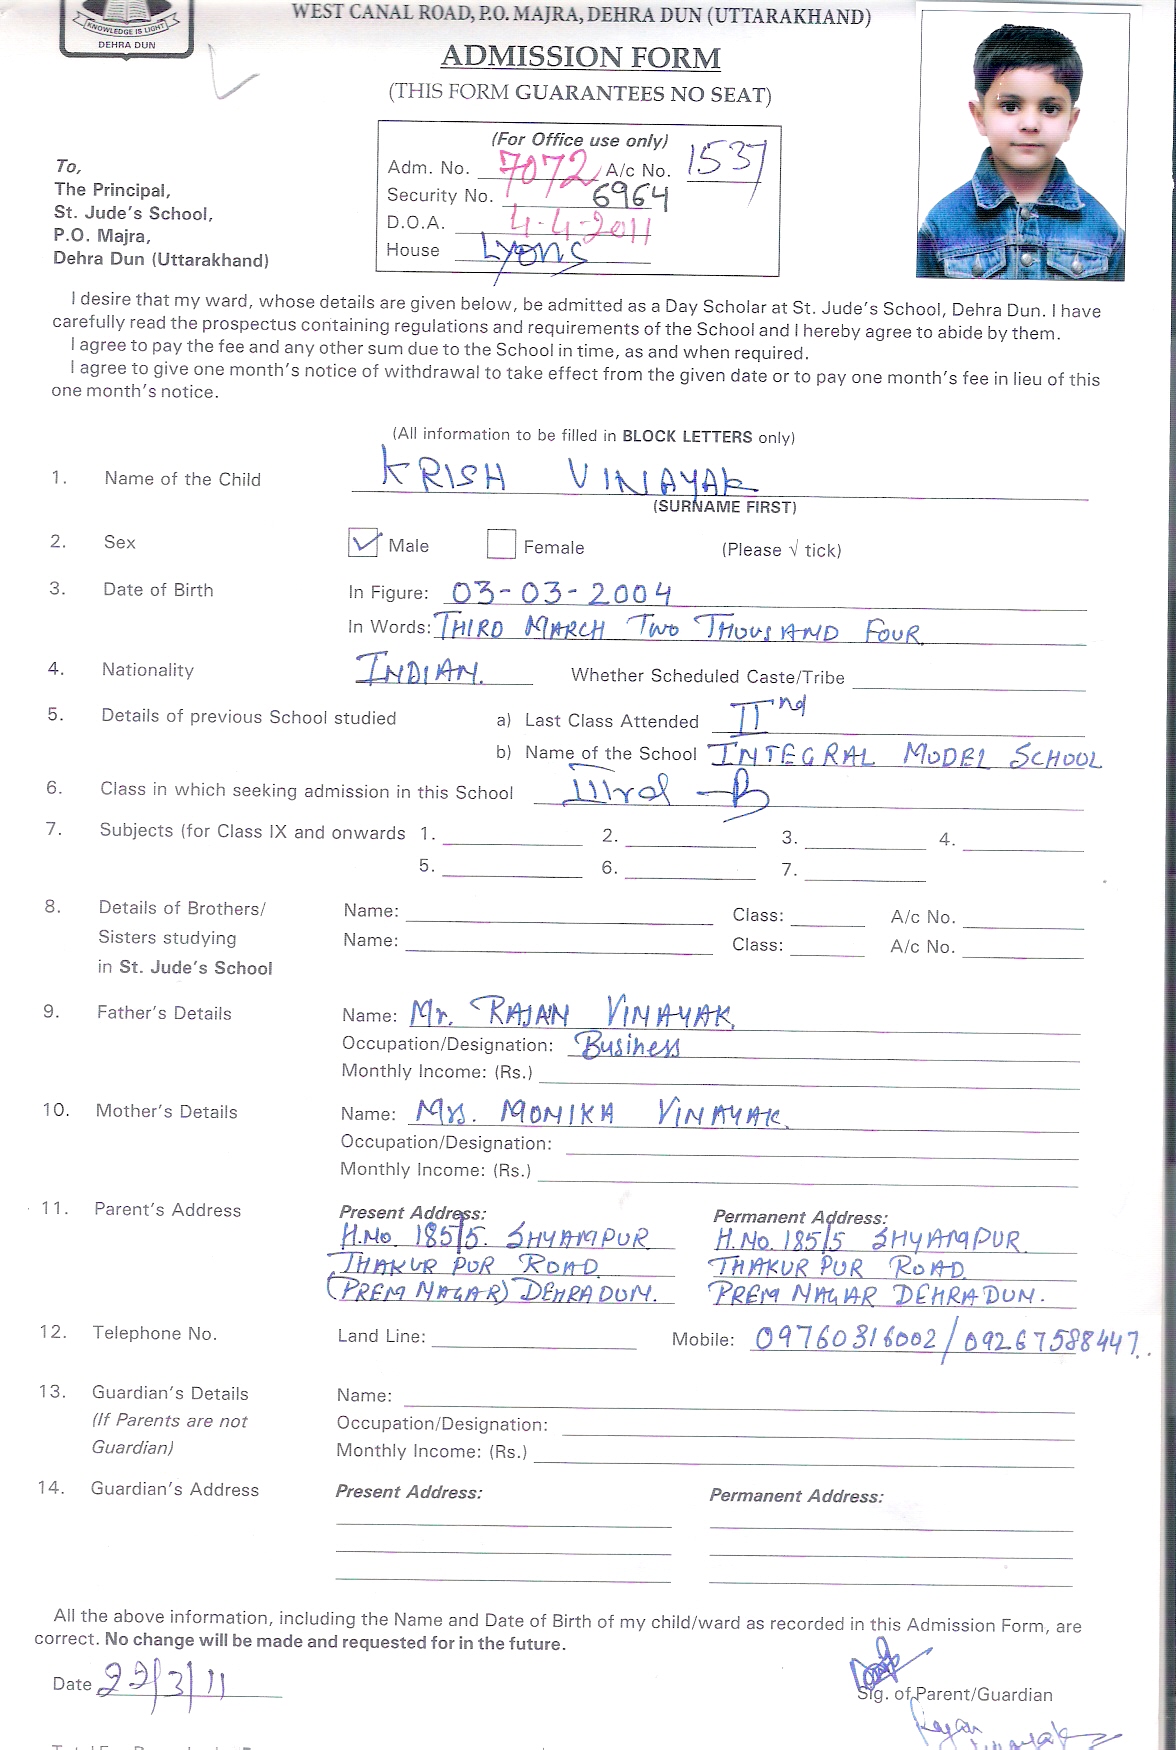 KNOWLEDGE IS LIGHT
DEHRA DUN
WEST CANAL ROAD, P.O. MAJRA, DEHRA DUN (UTTARAKHAND)
ADMISSION FORM
(THIS FORM GUARANTEES NO SEAT)
(For Office use only)
Adm. No. 7072 A/c No. 1537
Security No. 6964
D.O.A. 4-4-2011
House Lyons
To,
The Principal,
St. Jude's School,
P.O. Majra,
Dehra Dun (Uttarakhand)
I desire that my ward, whose details are given below, be admitted as a Day Scholar at St. Jude's School, Dehra Dun. I have
carefully read the prospectus containing regulations and requirements of the School and I hereby agree to abide by them.
I agree to pay the fee and any other sum due to the School in time, as and when required.
I agree to give one month's notice of withdrawal to take effect from the given date or to pay one month's fee in lieu of this
one month's notice.
(All information to be filled in BLOCK LETTERS only)
1. Name of the Child KRISH VINAYAK
(SURNAME FIRST)
2. Sex Male Female (Please √ tick)
3. Date of Birth In Figure: 03-03-2004
In Words: THIRD MARCH TWO THOUSAND FOUR
4. Nationality INDIAN. Whether Scheduled Caste/Tribe
5. Details of previous School studied a) Last Class Attended IInd
b) Name of the School INTEGRAL MODEL SCHOOL
6. Class in which seeking admission in this School IIIrd - B
7. Subjects (for Class IX and onwards 1. 2. 3. 4.
5. 6. 7.
8. Details of Brothers/ Name: Class: A/c No.
Sisters studying Name: Class: A/c No.
in St. Jude's School
9. Father's Details Name: Mr. RAJAN VINAYAK
Occupation/Designation: Business
Monthly Income: (Rs.)
10. Mother's Details Name: Mrs. MONIKA VINAYAK
Occupation/Designation:
Monthly Income: (Rs.)
11. Parent's Address Present Address: Permanent Address:
H.No. 185/5. SHYAMPUR H.No. 185/5 SHYAMPUR
THAKUR PUR ROAD THAKUR PUR ROAD
(PREM NAGAR) DEHRADUN. PREM NAGAR DEHRADUN.
12. Telephone No. Land Line: Mobile: 09760316002/09267588447.
13. Guardian's Details Name:
(If Parents are not Occupation/Designation:
Guardian) Monthly Income: (Rs.)
14. Guardian's Address Present Address: Permanent Address:
All the above information, including the Name and Date of Birth of my child/ward as recorded in this Admission Form, are
correct. No change will be made and requested for in the future.
Date 22/3/11
Sig. of Parent/Guardian
Rajan
Vinayak